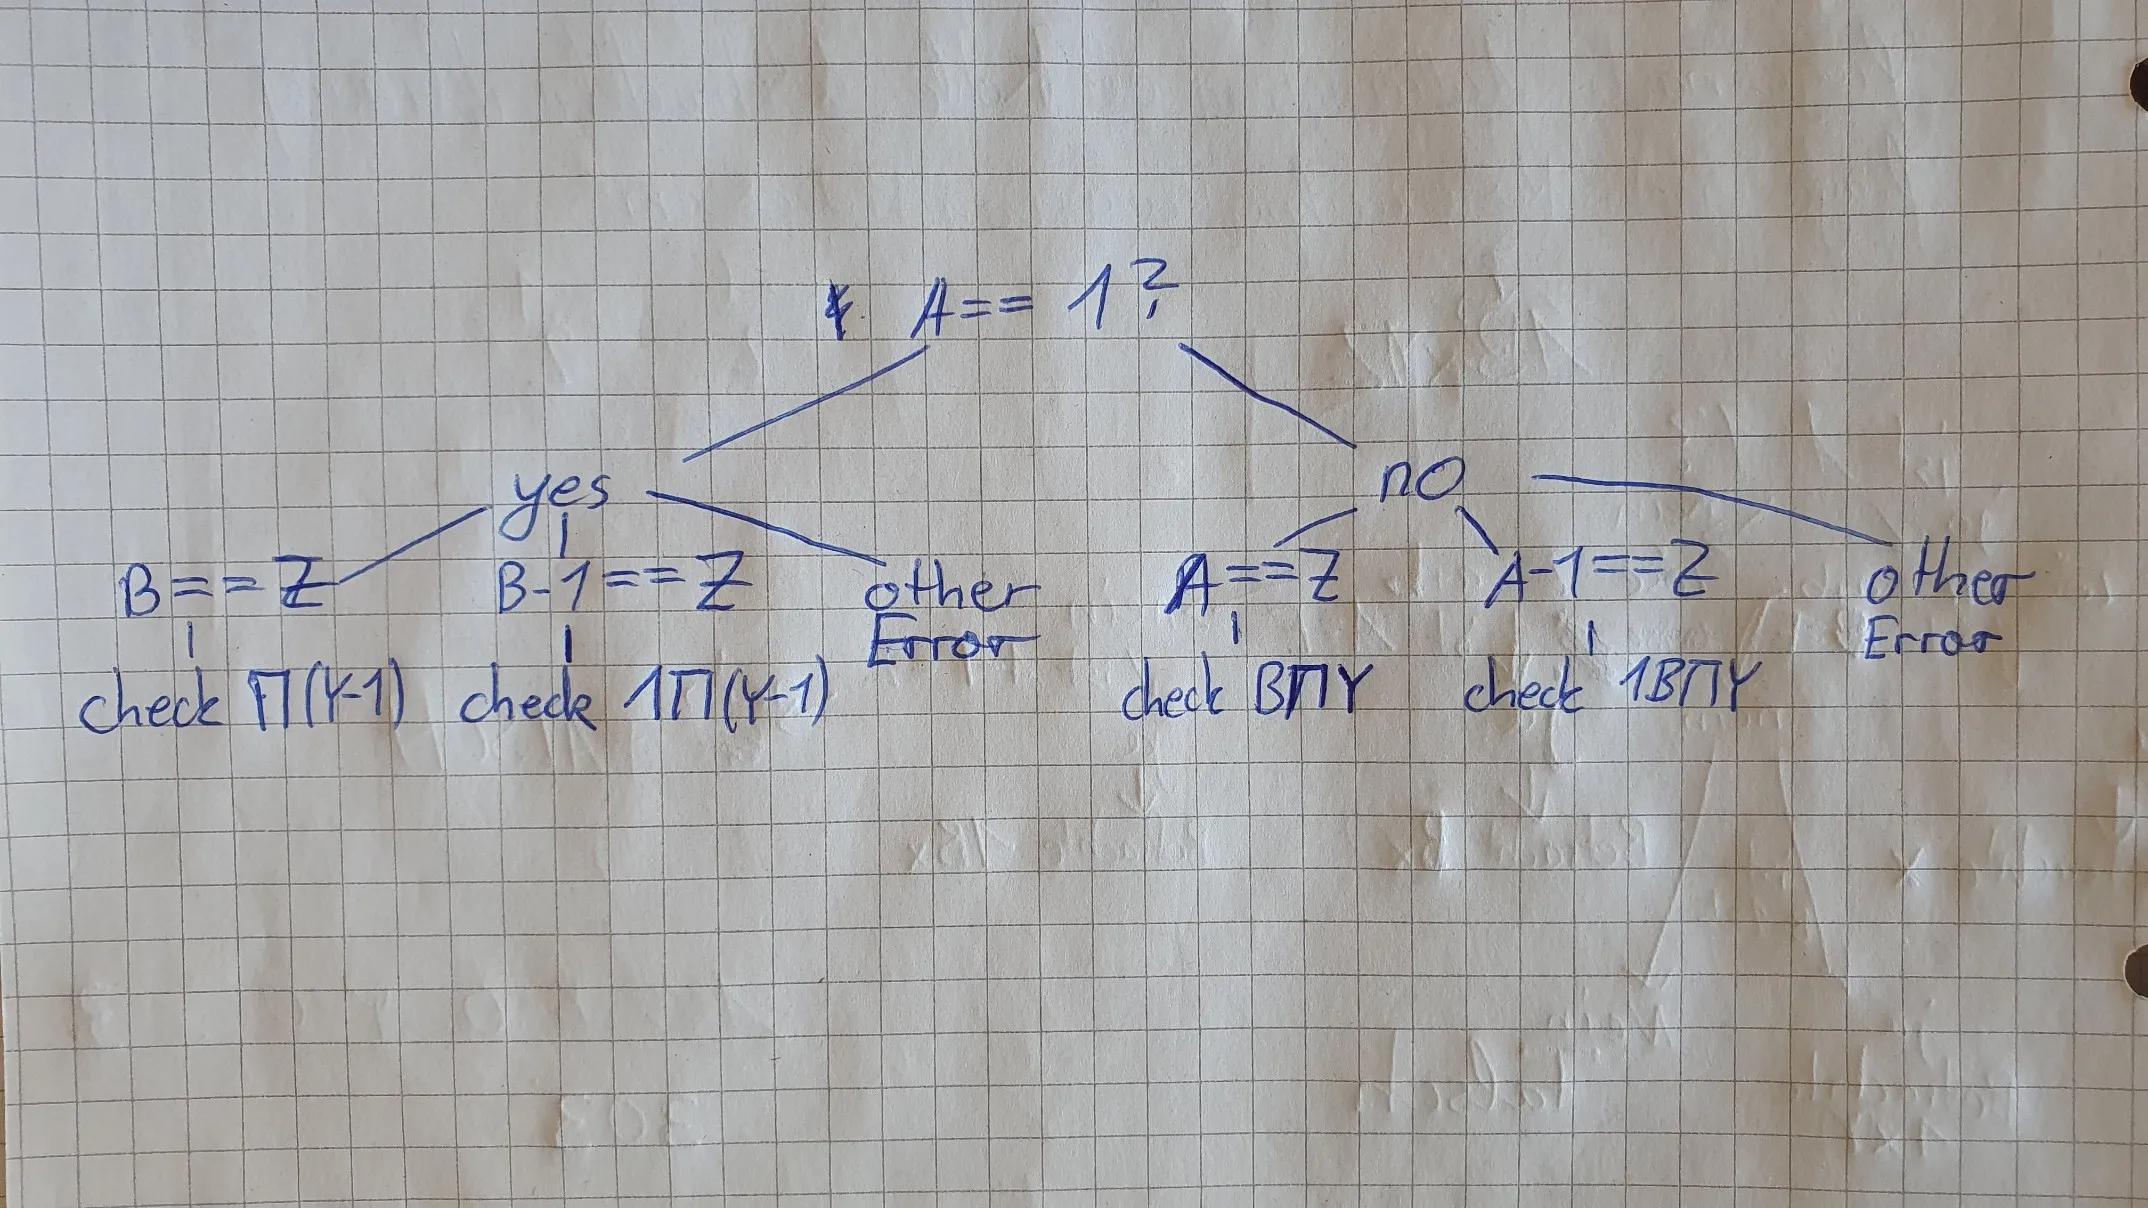 A== 1?
yes
no
B== Z
B-1==Z
other
Error
A==Z
A-1==Z
other
Error
check Π(Y-1)
check 1Π(Y-1)
check BΠY
check 1BΠY